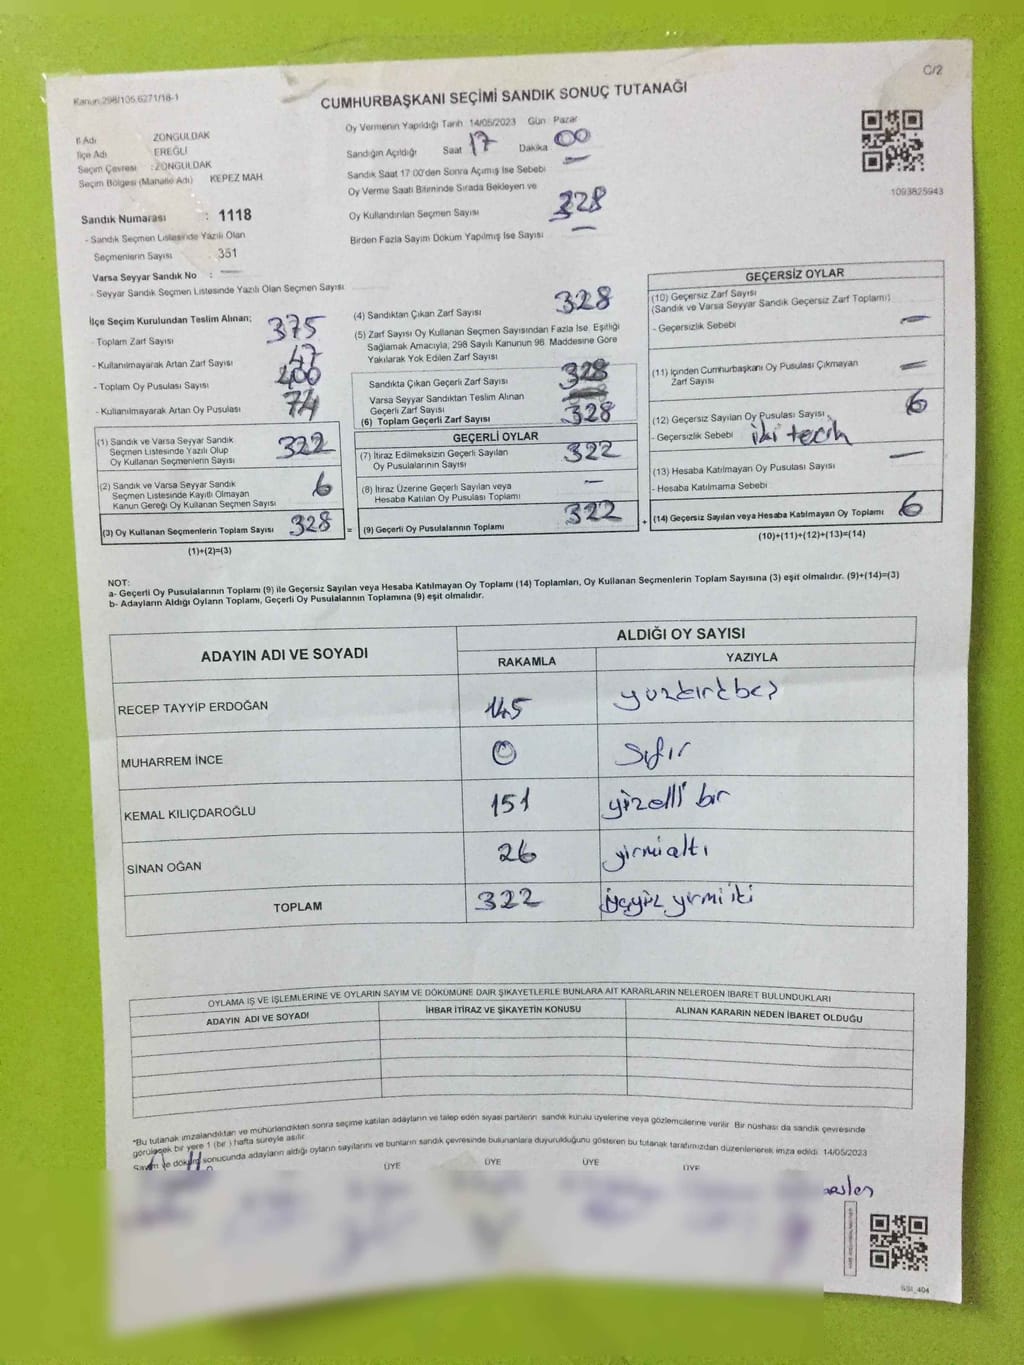 Kanun:298/105,6271/18-1
C/2
CUMHURBAŞKANI SEÇİMİ SANDIK SONUÇ TUTANAĞI
İl Adı ZONGULDAK
İlçe Adı EREĞLİ
Seçim Çevresi :ZONGULDAK
Seçim Bölgesi (Mahalle Adı) KEPEZ MAH
Sandık Numarası : 1118
- Sandık Seçmen Listesinde Yazılı Olan
Seçmenlerin Sayısı : 351
Varsa Seyyar Sandık No : —
- Seyyar Sandık Seçmen Listesinde Yazılı Olan Seçmen Sayısı
Oy Vermenin Yapıldığı Tarih 14/05/2023 Gün Pazar
Sandığın Açıldığı Saat 17 Dakika 00
Sandık Saat 17.00'den Sonra Açılmış İse Sebebi —
Oy Verme Saati Bitiminde Sırada Bekleyen ve
Oy Kullandırılan Seçmen Sayısı 328
Birden Fazla Sayım Döküm Yapılmış İse Sayısı —
1093825943
İlçe Seçim Kurulundan Teslim Alınan;
- Toplam Zarf Sayısı 375
- Kullanılmayarak Artan Zarf Sayısı 47
- Toplam Oy Pusulası Sayısı 400
- Kullanılmayarak Artan Oy Pusulası 74
(1) Sandık ve Varsa Seyyar Sandık
Seçmen Listesinde Yazılı Olup
Oy Kullanan Seçmenlerin Sayısı 322
(2) Sandık ve Varsa Seyyar Sandık
Seçmen Listesinde Kayıtlı Olmayan
Kanun Gereği Oy Kullanan Seçmen Sayısı 6
(3) Oy Kullanan Seçmenlerin Toplam Sayısı 328
(1)+(2)=(3)
(4) Sandıktan Çıkan Zarf Sayısı 328
(5) Zarf Sayısı Oy Kullanan Seçmen Sayısından Fazla İse, Eşitliği
Sağlamak Amacıyla, 298 Sayılı Kanunun 98. Maddesine Göre
Yakılarak Yok Edilen Zarf Sayısı
Sandıkta Çıkan Geçerli Zarf Sayısı 328
Varsa Seyyar Sandıktan Teslim Alınan
Geçerli Zarf Sayısı
(6) Toplam Geçerli Zarf Sayısı 328
GEÇERLİ OYLAR
(7) İtiraz Edilmeksizin Geçerli Sayılan
Oy Pusulalarının Sayısı 322
(8) İtiraz Üzerine Geçerli Sayılan veya
Hesaba Katılan Oy Pusulası Toplamı —
= (9) Geçerli Oy Pusulalarının Toplamı 322
GEÇERSİZ OYLAR
(10) Geçersiz Zarf Sayısı
(Sandık ve Varsa Seyyar Sandık Geçersiz Zarf Toplamı)
- Geçersizlik Sebebi —
(11) İçinden Cumhurbaşkanı Oy Pusulası Çıkmayan
Zarf Sayısı —
(12) Geçersiz Sayılan Oy Pusulası Sayısı 6
- Geçersizlik Sebebi iki tecih
(13) Hesaba Katılmayan Oy Pusulası Sayısı —
- Hesaba Katılmama Sebebi
+ (14) Geçersiz Sayılan veya Hesaba Katılmayan Oy Toplamı 6
(10)+(11)+(12)+(13)=(14)
NOT:
a- Geçerli Oy Pusulalarının Toplam (9) ile Geçersiz Sayılan veya Hesaba Katılmayan Oy Toplamı (14) Toplamları, Oy Kullanan Seçmenlerin Toplam Sayısına (3) eşit olmalıdır. (9)+(14)=(3)
b- Adayların Aldığı Oyların Toplamı, Geçerli Oy Pusulalarının Toplamına (9) eşit olmalıdır.
ADAYIN ADI VE SOYADI ALDIĞI OY SAYISI
RAKAMLA YAZIYLA
RECEP TAYYİP ERDOĞAN 145 yüzkırkbeş
MUHARREM İNCE 0 Sıfır
KEMAL KILIÇDAROĞLU 151 yüzelli bir
SİNAN OĞAN 26 yirmialtı
TOPLAM 322 üçyüz yirmi iki
OYLAMA İŞ VE İŞLEMLERİNE VE OYLARIN SAYIM VE DÖKÜMÜNE DAİR ŞİKAYETLERLE BUNLARA AİT KARARLARIN NELERDEN İBARET BULUNDUKLARI
ADAYIN ADI VE SOYADI İHBAR İTİRAZ VE ŞİKAYETİN KONUSU ALINAN KARARIN NEDEN İBARET OLDUĞU
*Bu tutanak imzalandıktan ve mühürlendikten sonra seçime katılan adayların ve talep eden siyasi partilerin sandık kurulu üyelerine veya gözlemcilerine verilir. Bir nüshası da sandık çevresinde
görülecek bir yere 1 (bir ) hafta süreyle asılır.
Sayım ve döküm sonucunda adayların aldığı oyların sayılarını ve bunların sandık çevresinde bulunanlara duyurulduğunu gösteren bu tutanak tarafımızdan düzenlenerek imza edildi. 14/05/2023
ÜYE ÜYE ÜYE ÜYE